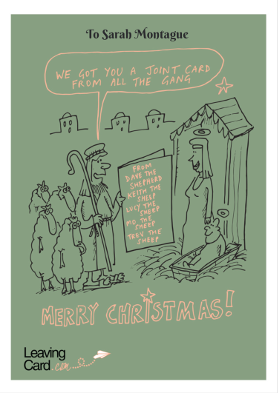 To Sarah Montague
WE GOT YOU A JOINT CARD
FROM ALL THE GANG
FROM
DAVE THE
SHEPHERD
KEITH THE
SHEEP
LUCY THE
SHEEP
MO THE
SHEEP
TROY THE
SHEEP
MERRY CHRISTMAS!
Leaving
Card.com